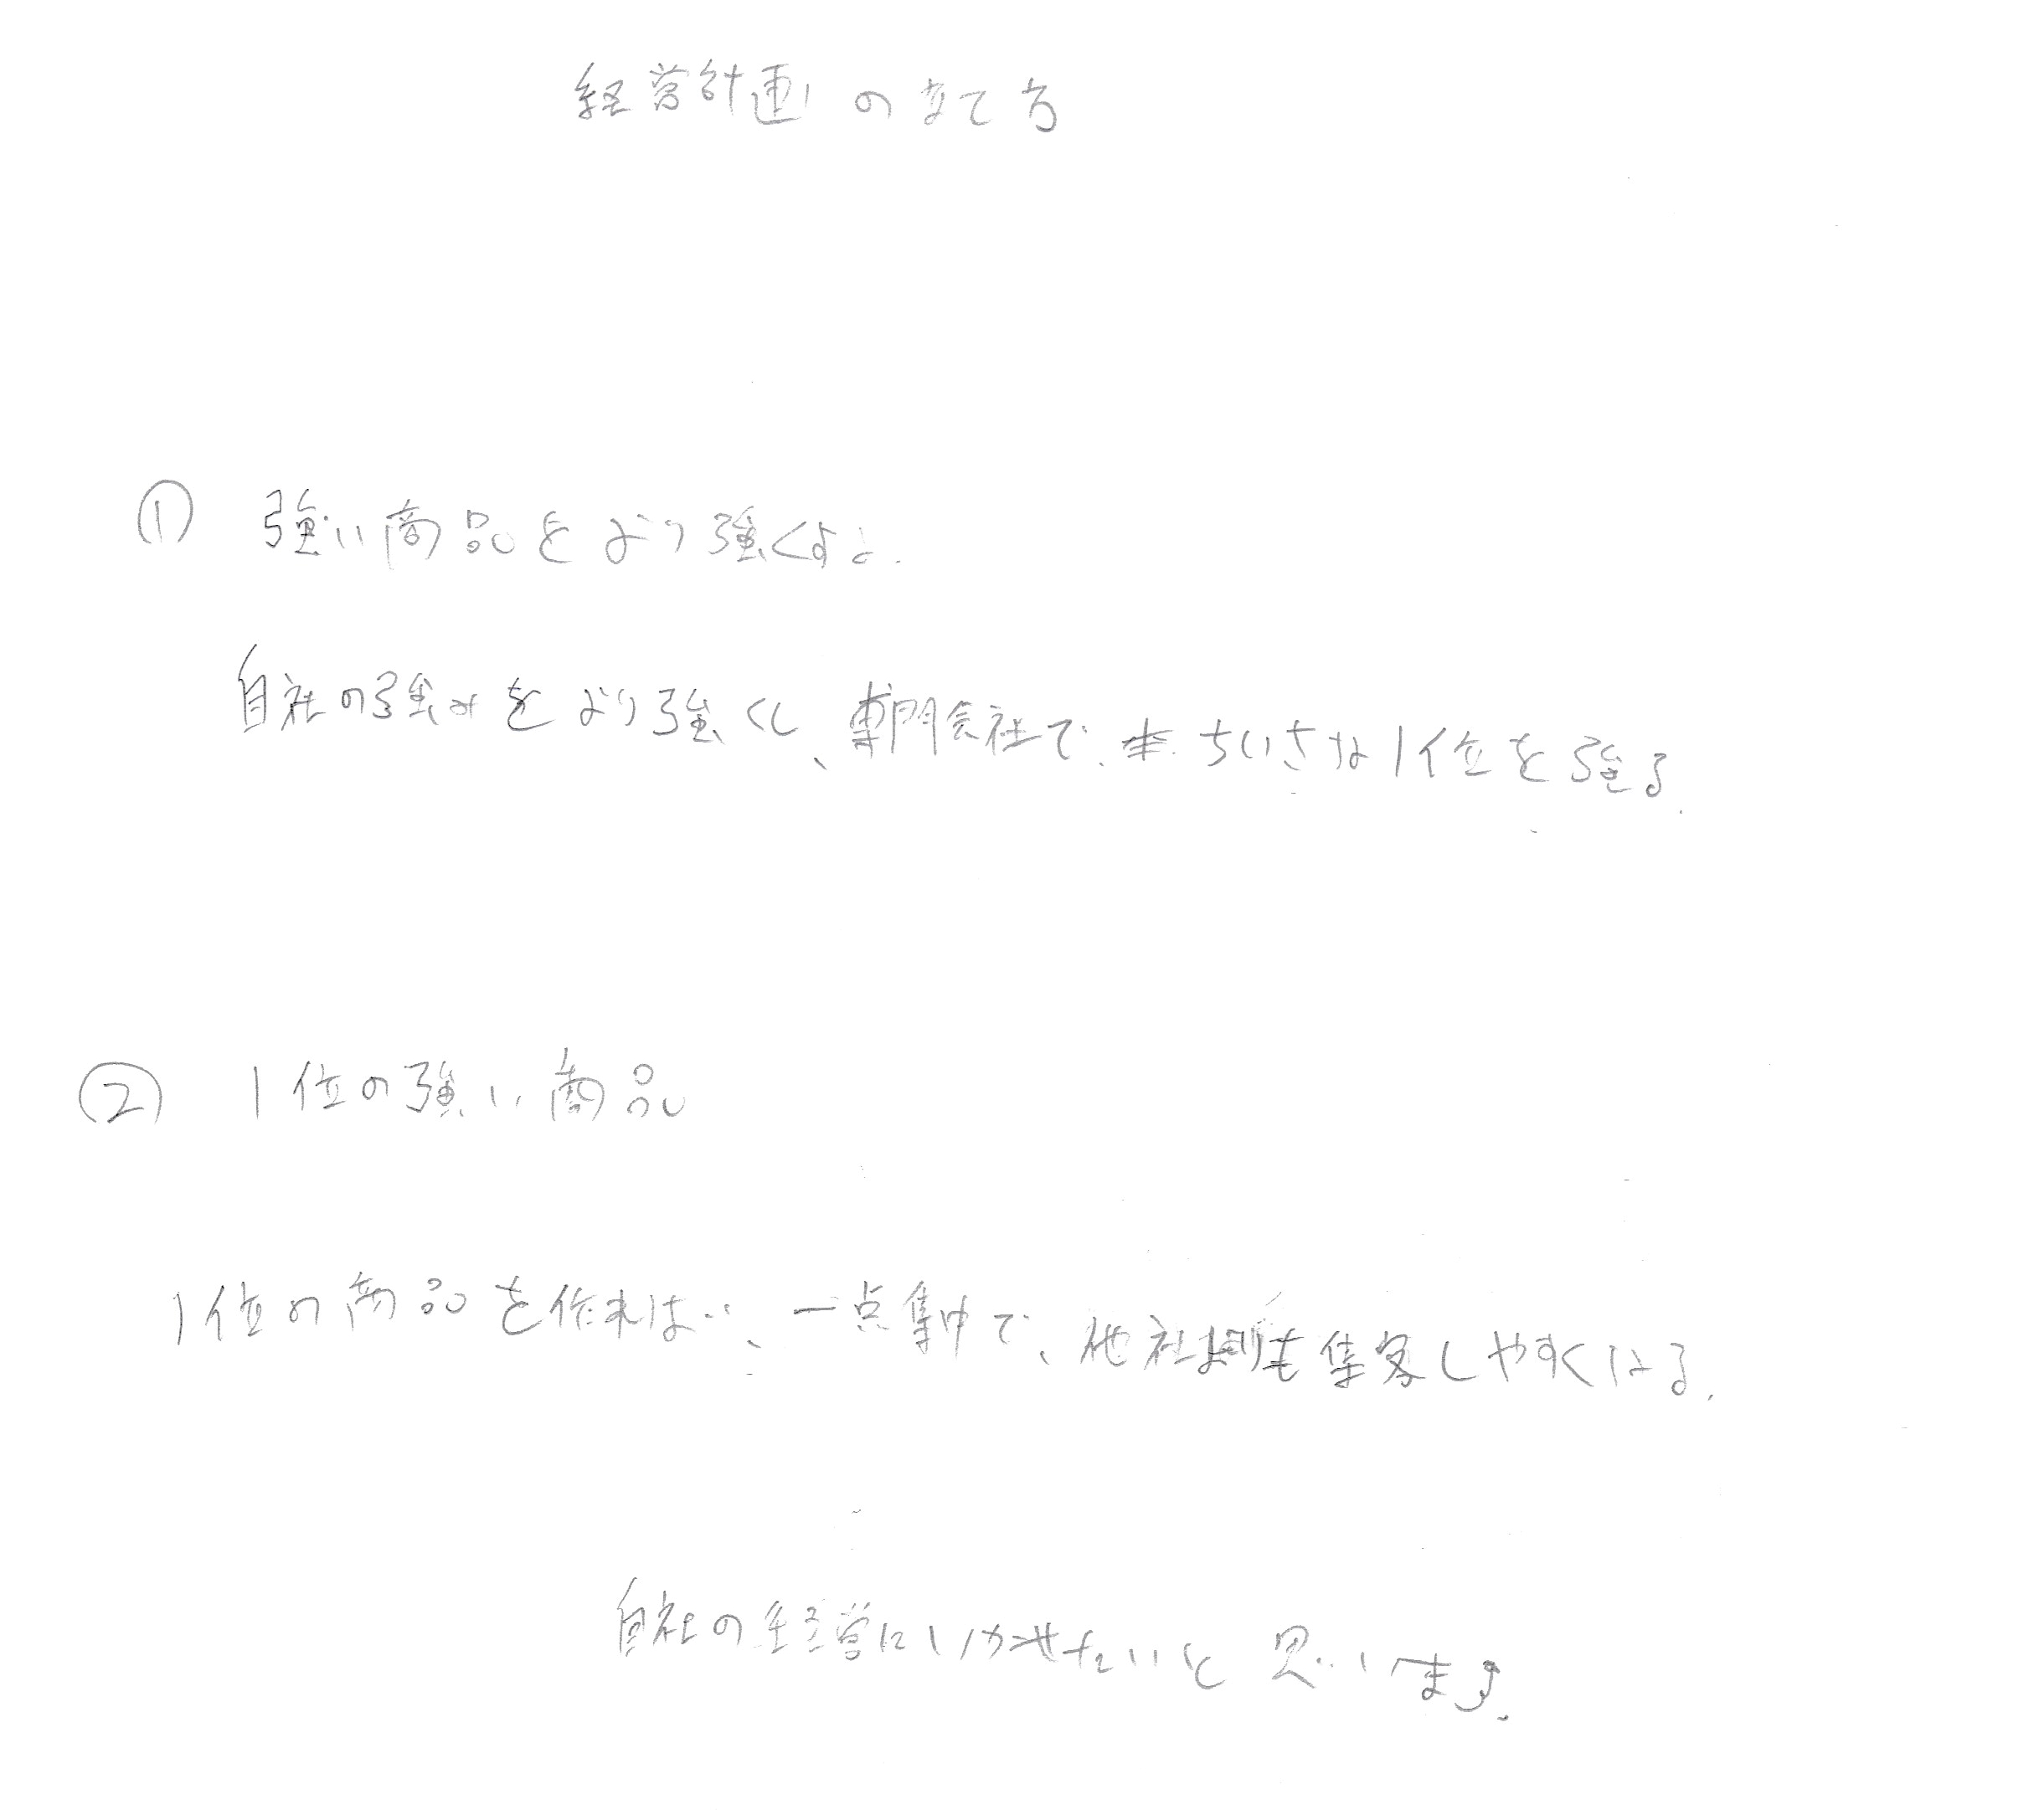 経営計画の立て方
① 強い商品をより強くする.
自社の強みをより強くし、専門会社で、ちいさな1位を強る.
② 1位の強い商品
1位の商品を作れば、一点集中で、他社よりも集客しやすくなる.
自社の経営にいかせたいと思います.